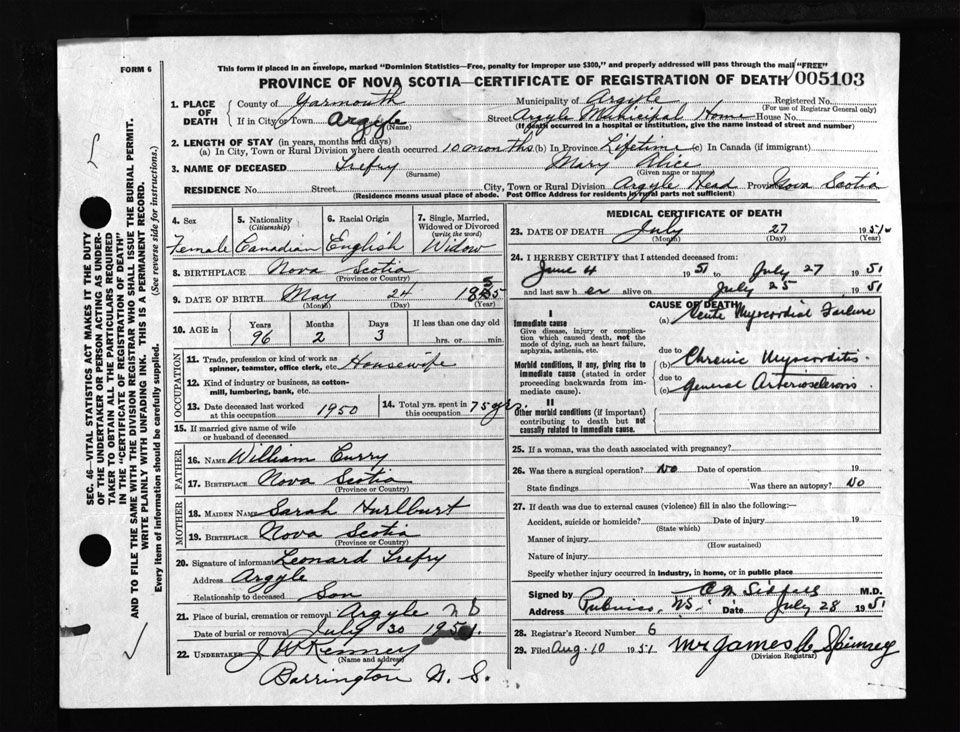 FORM 6
This form if placed in an envelope, marked "Dominion Statistics—Free, penalty for improper use $300," and properly addressed will pass through the mail "FREE"
PROVINCE OF NOVA SCOTIA—CERTIFICATE OF REGISTRATION OF DEATH 005103
1. PLACE OF DEATH County of Yarmouth Municipality of Argyle Registered No.
(For use of Registrar General only)
If in City or Town Argyle (Name) Street Argyle Municipal Home House No.
(If death occurred in a hospital or institution, give the name instead of street and number)
2. LENGTH OF STAY (in years, months and days)
(a) In City, Town or Rural Division where death occurred 10 months (b) In Province Lifetime (c) In Canada (if immigrant)
3. NAME OF DECEASED Trefry Mary Alice
(Surname) (Given name or names)
RESIDENCE No. Street City, Town or Rural Division Argyle Head Province Nova Scotia
(Residence means usual place of abode. Post Office Address for residents in rural parts not sufficient)
4. Sex Female
5. Nationality (Citizenship) Canadian
6. Racial Origin English
7. Single, Married, Widowed or Divorced (write the word) Widow
8. BIRTHPLACE Nova Scotia
(Province or Country)
9. DATE OF BIRTH May 24 1855
(Month) (Day) (Year)
10. AGE in Years 96 Months 2 Days 3 If less than one day old hrs. or min.
OCCUPATION
11. Trade, profession or kind of work as spinner, teamster, office clerk, etc. Housewife
12. Kind of industry or business, as cotton-mill, lumbering, bank, etc.
13. Date deceased last worked at this occupation 1950
14. Total yrs. spent in this occupation 75 yr.
15. If married give name of wife or husband of deceased
FATHER
16. NAME William Curry
17. BIRTHPLACE Nova Scotia
(Province or Country)
MOTHER
18. MAIDEN NAME Sarah Hurlburt
19. BIRTHPLACE Nova Scotia
(Province or Country)
20. Signature of informant Leonard Trefry
Address Argyle
Relationship to deceased Son
21. Place of burial, cremation or removal Argyle
Date of burial or removal July 30 1951.
22. UNDERTAKER J W Kenney
(Name and address)
Barrington N. S.
MEDICAL CERTIFICATE OF DEATH
23. DATE OF DEATH July 27 1951
(Month) (Day) (Year)
24. I HEREBY CERTIFY that I attended deceased from:
June 4 1951 to July 27 1951
and last saw her alive on July 25 1951
CAUSE OF DEATH
I
Immediate cause
Give disease, injury or complication which caused death, not the mode of dying, such as heart failure, asphyxia, asthenia, etc.
(a) Acute Myocordial Failure
due to
Morbid conditions, if any, giving rise to immediate cause (stated in order proceeding backwards from immediate cause).
(b) Chronic Myocorditis.
due to
(c) General Arteriosclerosis.
II
Other morbid conditions (if important) contributing to death but not causally related to immediate cause.
25. If a woman, was the death associated with pregnancy?
26. Was there a surgical operation? No Date of operation 19
State findings Was there an autopsy? No
27. If death was due to external causes (violence) fill in also the following:—
Accident, suicide or homicide? Date of injury 19
(State which)
Manner of injury
(How sustained)
Nature of injury
Specify whether injury occurred in industry, in home, or in public place
Signed by M.D.
Address Pubnico, NS. Date July 28 1951
28. Registrar's Record Number 6
29. Filed Aug. 10 1951 Mrs James C Spinney
(Division Registrar)
SEC. 46—VITAL STATISTICS ACT MAKES IT THE DUTY
OF THE UNDERTAKER OR PERSON ACTING AS UNDER-
TAKER TO OBTAIN ALL THE PARTICULARS REQUIRED
IN THE "CERTIFICATE OF REGISTRATION OF DEATH"
AND TO FILE THE SAME WITH THE DIVISION REGISTRAR WHO SHALL ISSUE THE BURIAL PERMIT.
WRITE PLAINLY WITH UNFADING INK. THIS IS A PERMANENT RECORD.
Every item of information should be carefully supplied. (See reverse side for instructions.)